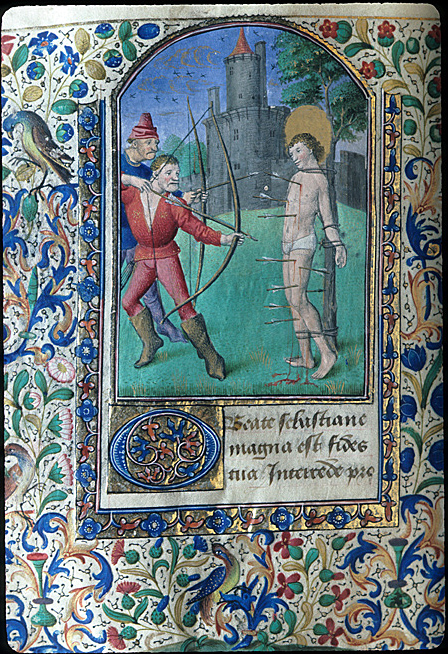 O Beate sebastiane
magna est fides
tua Intercede pro